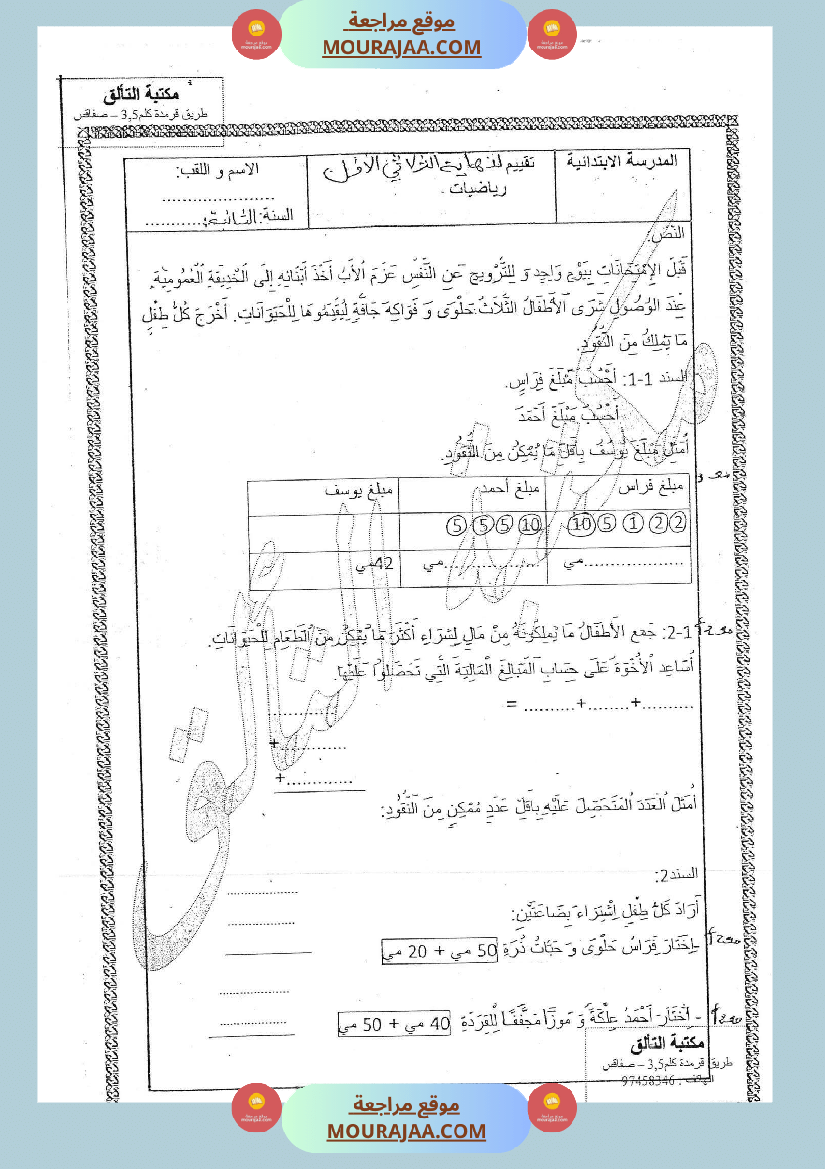 موقع مراجعة
MOURAJAA.COM
مكتبة التألق
طريق قرمدة كلم3,5 – صفاقس
المدرسة الابتدانية
تقييم لنهاية الثلاثي الأول
رياضيات .
الاسم و اللقب:
......................
السنة: الثالثة............
النَصّ:
قَبْلَ الإِمْتِحَانَاتِ بِيَوْمٍ وَاحِدٍ وَ لِلتَّرْوِيحِ عَنِ النَّفْسِ عَزَمَ الأَبُ أَخَذَ أَبْنَائِهِ إِلَى الْحَدِيقَةِ الْعُمُومِيَّةِ.
عِنْدَ الوُصُولِ شَرَى الأَطْفَالُ الثَّلَاثُ حَلْوَى وَ فَوَاكِهَ جَافَّةٍ لِيُقَدِّمُوهَا لِلْحَيَوَانَاتِ. أَخْرَجَ كُلُّ طِفْلٍ
مَا يَمْلِكُ مِنَ النُّقُودِ.
السند 1-1: أَحْسُبُ مَبْلَغَ فِرَاسٍ.
أَحْسُبُ مَبْلَغَ أَحْمَدَ
أُمَثِّلُ مَبْلَغَ يُوسُفَ بِأَقَلَّ مَا يُمْكِنُ مِنَ النُّقُودِ.
مبلغ فراس مبلغ أحمد مبلغ يوسف
2 2 1 5 10 10 5 5 5
....................مي ...................مي 42مي
1-2: جَمَع الأَطْفَالُ مَا يَمْلِكُونَهُ مِنْ مَالٍ لِشِرَاءِ أَكْثَرَ مَا يُمْكِنُ مِنَ الطَّعَامِ لِلْحَيَوَانَاتِ.
أُسَاعِدُ الأُخْوَةَ عَلَى حِسَابِ الْمَبَالِغِ الْمَالِيَّةِ الَّتِي تَحَصَّلُوا عَلَيْهَا.
..........+........+.......... =
..............
+.............
+.............
أُمَثِّلُ العَدَدَ المُتَحَصَّلَ عَلَيْهِ بِأَقَلِّ عَدَدٍ مُمْكِنٍ مِنَ النُّقُودِ:
السند2:
أَرَادَ كُلُّ طِفْلٍ اِشْتِرَاءَ بِضَاعَتَيْنِ:
-اِخْتَارَ فِرَاسُ حَلْوَى وَ حَبَّاتُ ذُرَةِ 50 مي + 20 مي
- اِخْتَارَ أَحْمَدُ عِلْكَةً وَ مَوْزًا مُجَفَّفًا لِلْقِرَدَةِ 40 مي + 50 مي
مكتبة التألق
طريق قرمدة كلم3,5 – صفاقس
الهاتف : 97458346
موقع مراجعة
MOURAJAA.COM